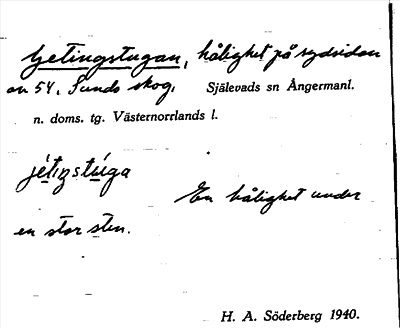 Getingstugan, hålighet på sydsidan
av 54. Sunds skog. Själevads sn Ångermanl.
n. doms. tg. Västernorrlands l.
jétiŋstúga
En hålighet under
en stor sten.
H. A. Söderberg 1940.